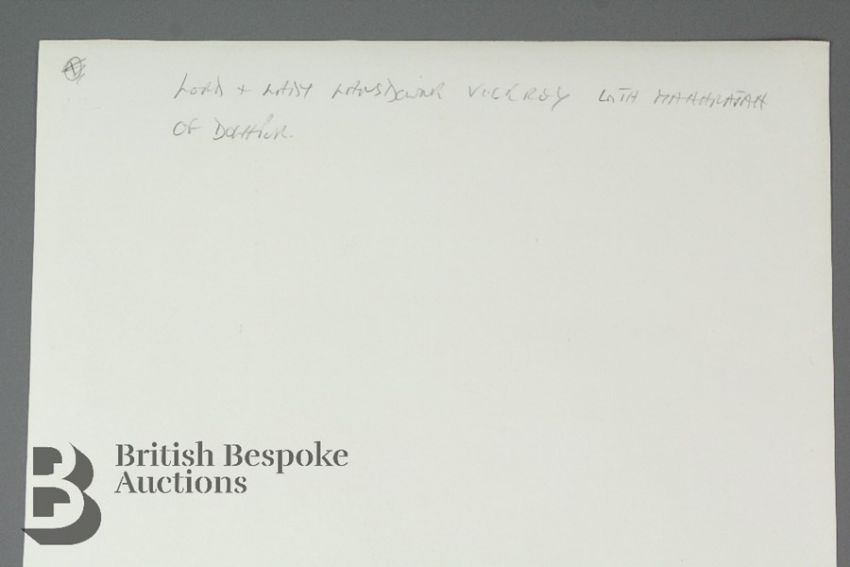 LORD + LADY LANSDOWNE VICEROY WITH MAHARAJAH
OF
British Bespoke
Auctions
B